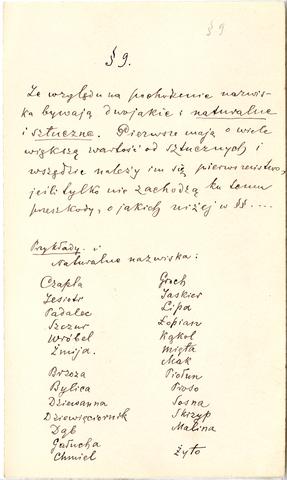 § 9
§ 9.
Ze względu na pochodzenie nazwis-
ka bywają dwojakie: naturalne
i sztuczne. Pierwsze mają o wiele
większą wartość od sztucznych i
wszędzie należy im się pierwszeństwo,
jeśli tylko nie zachodzą ku temu
przeszkody, o jakich niżej w §§ ....
Przykłady:
Naturalne nazwiska:
Czapla Groch
Jesiotr Jaskier
Padalec Lipa
Szczur Łopian
Wróbel Kąkol
Żmija. Mięta
Mak
Brzoza Piołun
Bylica Proso
Dziewanna Sosna
Dziewięciornik Skrzyp
Dąb Malina
Gałucha
Chmiel Żyto